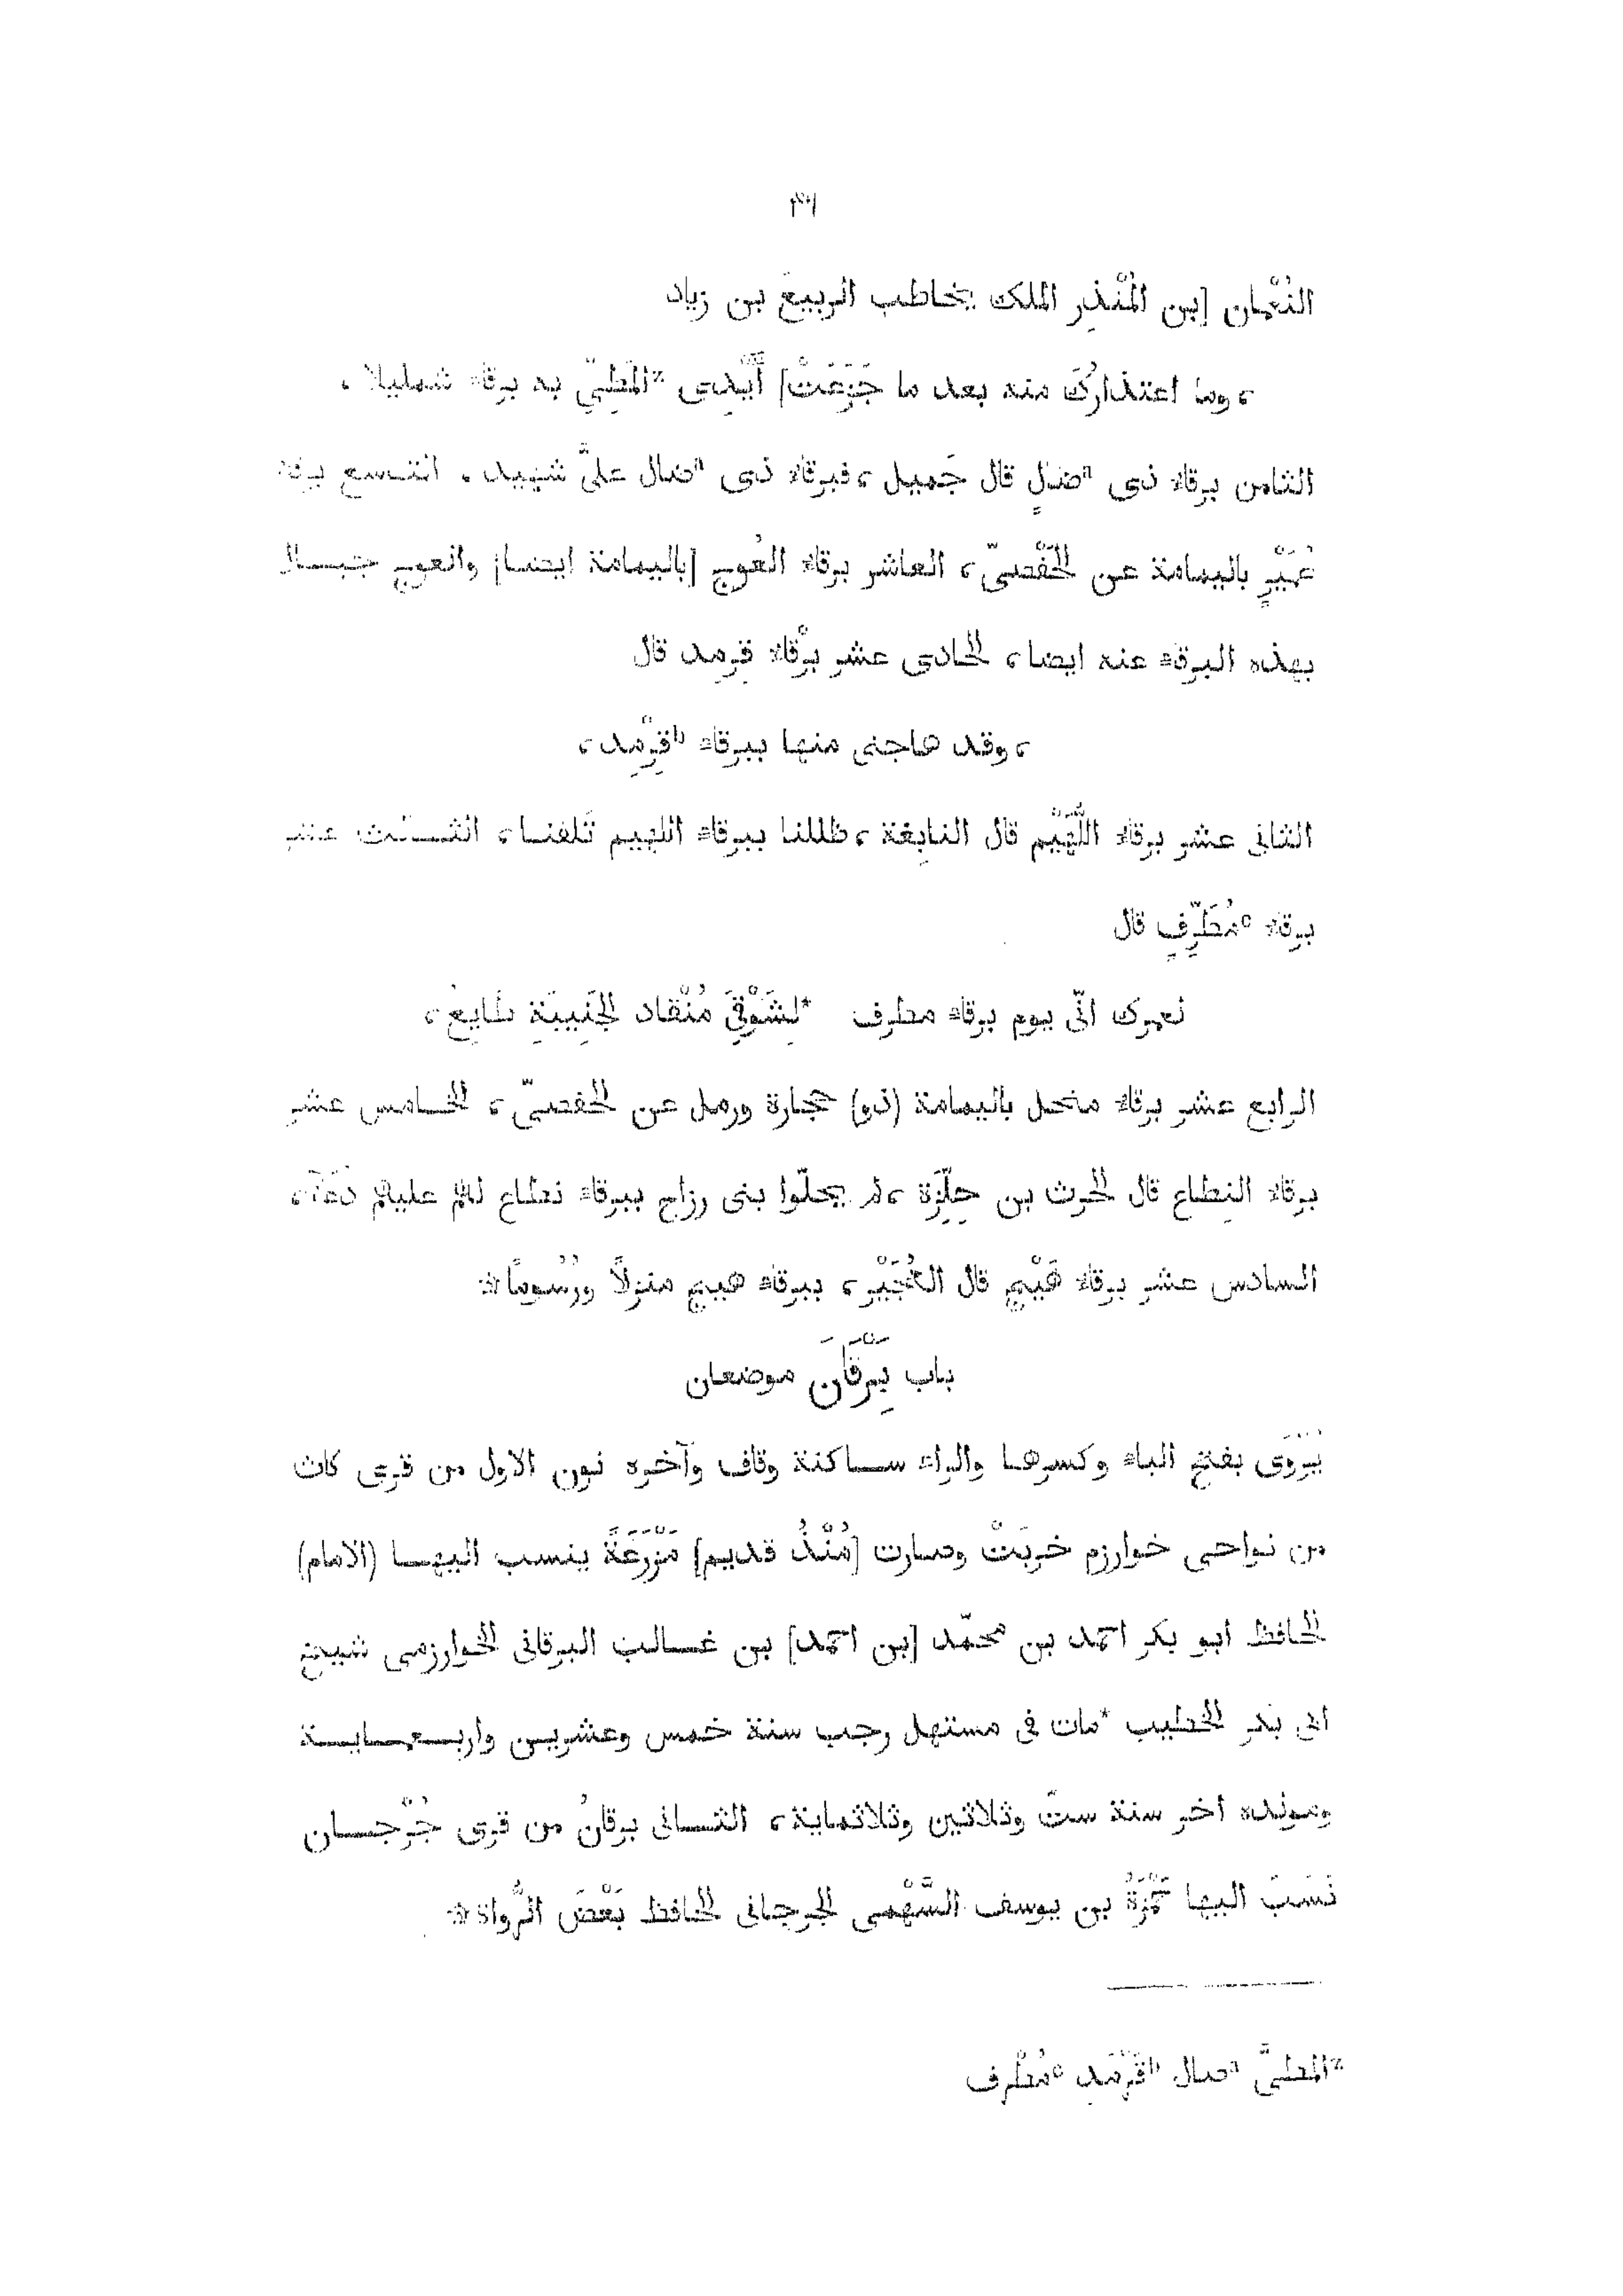 ٤٦
النُعْمان [بن المُنْذِر الملك يخاطب الربيعَ بن زياد
، وما اعتذارُكَ منه بعد ما جَزَعَتْ] أَيْدِى المَطِىِّ به برقاء شمليلا ،
الثامن برقاء ذى ضالٍ قال جَميل ، فبرقاء ذى ضال علىَّ شهيد ، التـاسع برقاء
عُمَيْرٍ باليمامة عن الحَفْصىّ ، العاشر برقاء العُوج [باليمامة ايضـا] والعوج جبـال
بهذه البرقاء عنه ايضا ، الحادى عشر برْقاء قِرمِد قال
، وقد هاجنى منها ببرقاء قِرْمِد ،
الثانى عشر برقاء اللُّهَيْم قال النابِغة ، ظللنا ببرقاء اللهيم تَلفنـا ، الثـالث عشر
برقاء مُطَرِّفٍ قال
لعمرك انّى يوم برقاء مطرف * لِشَوْقِى مُنْقاد الجَنِيبَةِ طايِعُ ،
الرابع عشر برقاء منحل باليمامة (ذو) حجارة ورمل عن الحفصىّ ، الخـامس عشر
برقاء النِطاع قال الحرث بن حِلِّزة ، لم يحلّوا بنى رزاح ببرقاء نطاع لهم عليهم دُعَآء ،
السادس عشر برقاء هَيْمٍ قال العُجَيْر ، ببرقاء هيمٍ منزلاً ورُسُومًا ۞
باب بَِرْقَانَ موضعان
يُرْوَى بفتح الباء وكسرهـا والراء سـاكنة وقاف وآخره نون الاول من قرى كاث
من نواحى خوارزم خربَتْ وصارت [مُنْذُ قديم] مَزْرَعَةً ينسب اليهـا (الامام)
الحافظ ابو بكر احمد بن محمّد [بن احمد] بن غـالب البرقانى الخوارزمى شيخ
ابى بكر الخطيب *مات فى مستهل رجب سنة خمس وعشرين واربـعـمـايـة
ومولده اخر سنة ستّ وثلاثين وثلاثماية ، الثـانى برقانُ من قرى جُرْجـان
نَسَبَ اليها حَمْزَةُ بن يوسف السَّهْمى الجرجانى الحافظ بَعْضَ الرُّواة ۞
المطىَّ صال قَرْمَد مُطْرف